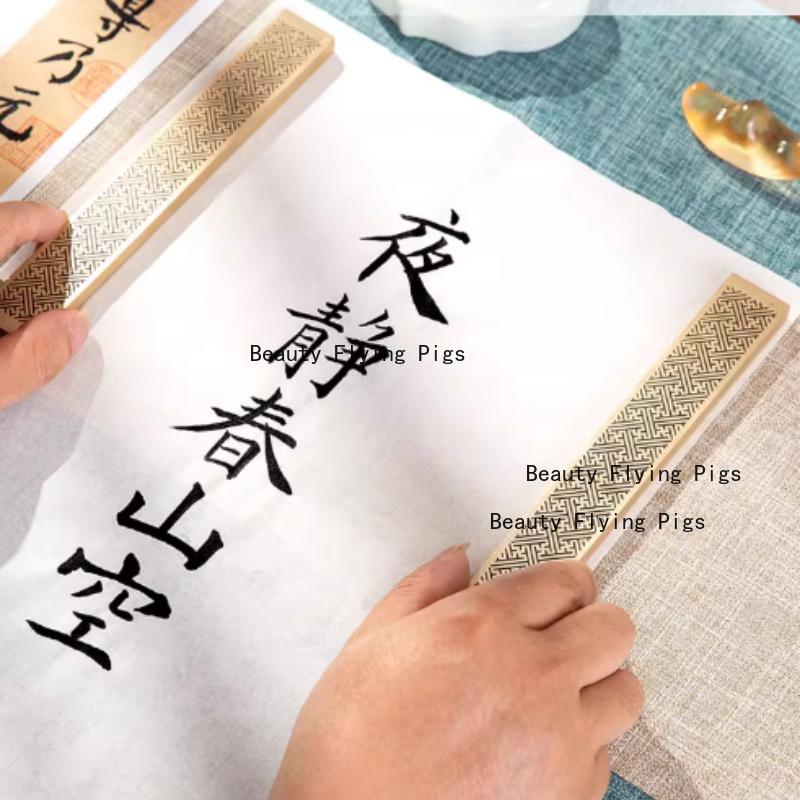 夜静春山空
Beauty Flying Pigs
Beauty Flying Pigs
Beauty Flying Pigs